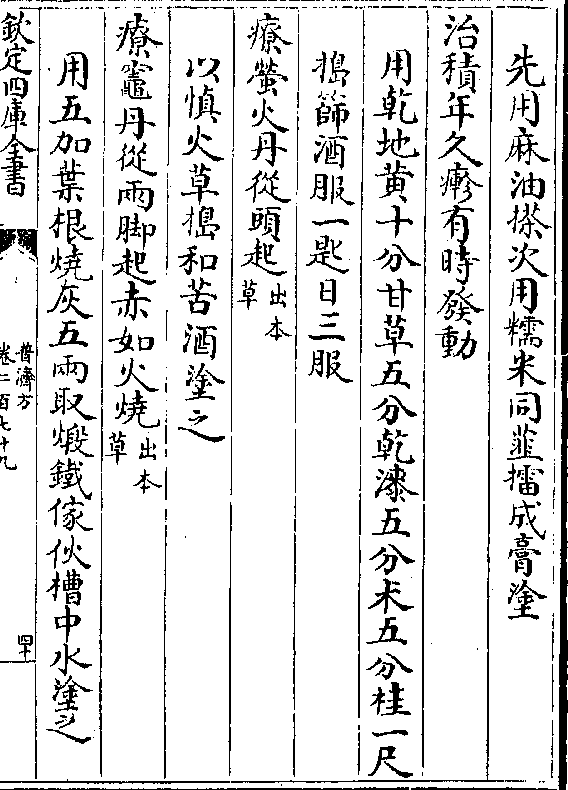 先用麻油搽次用糯米同韮擂成膏塗
治積年久瘮有時發動
用乾地黄十分甘草五分乾漆五分朮五分桂一尺
搗篩酒服一匙日三服
療螢火丹從頭起出本草
以慎火草搗和苦酒塗之
療竈丹從兩脚起赤如火燒出本草
用五加葉根燒灰五兩取煅鐵傢伙槽中水塗之
欽定四庫全書
普濟方
卷二百七十九
四十